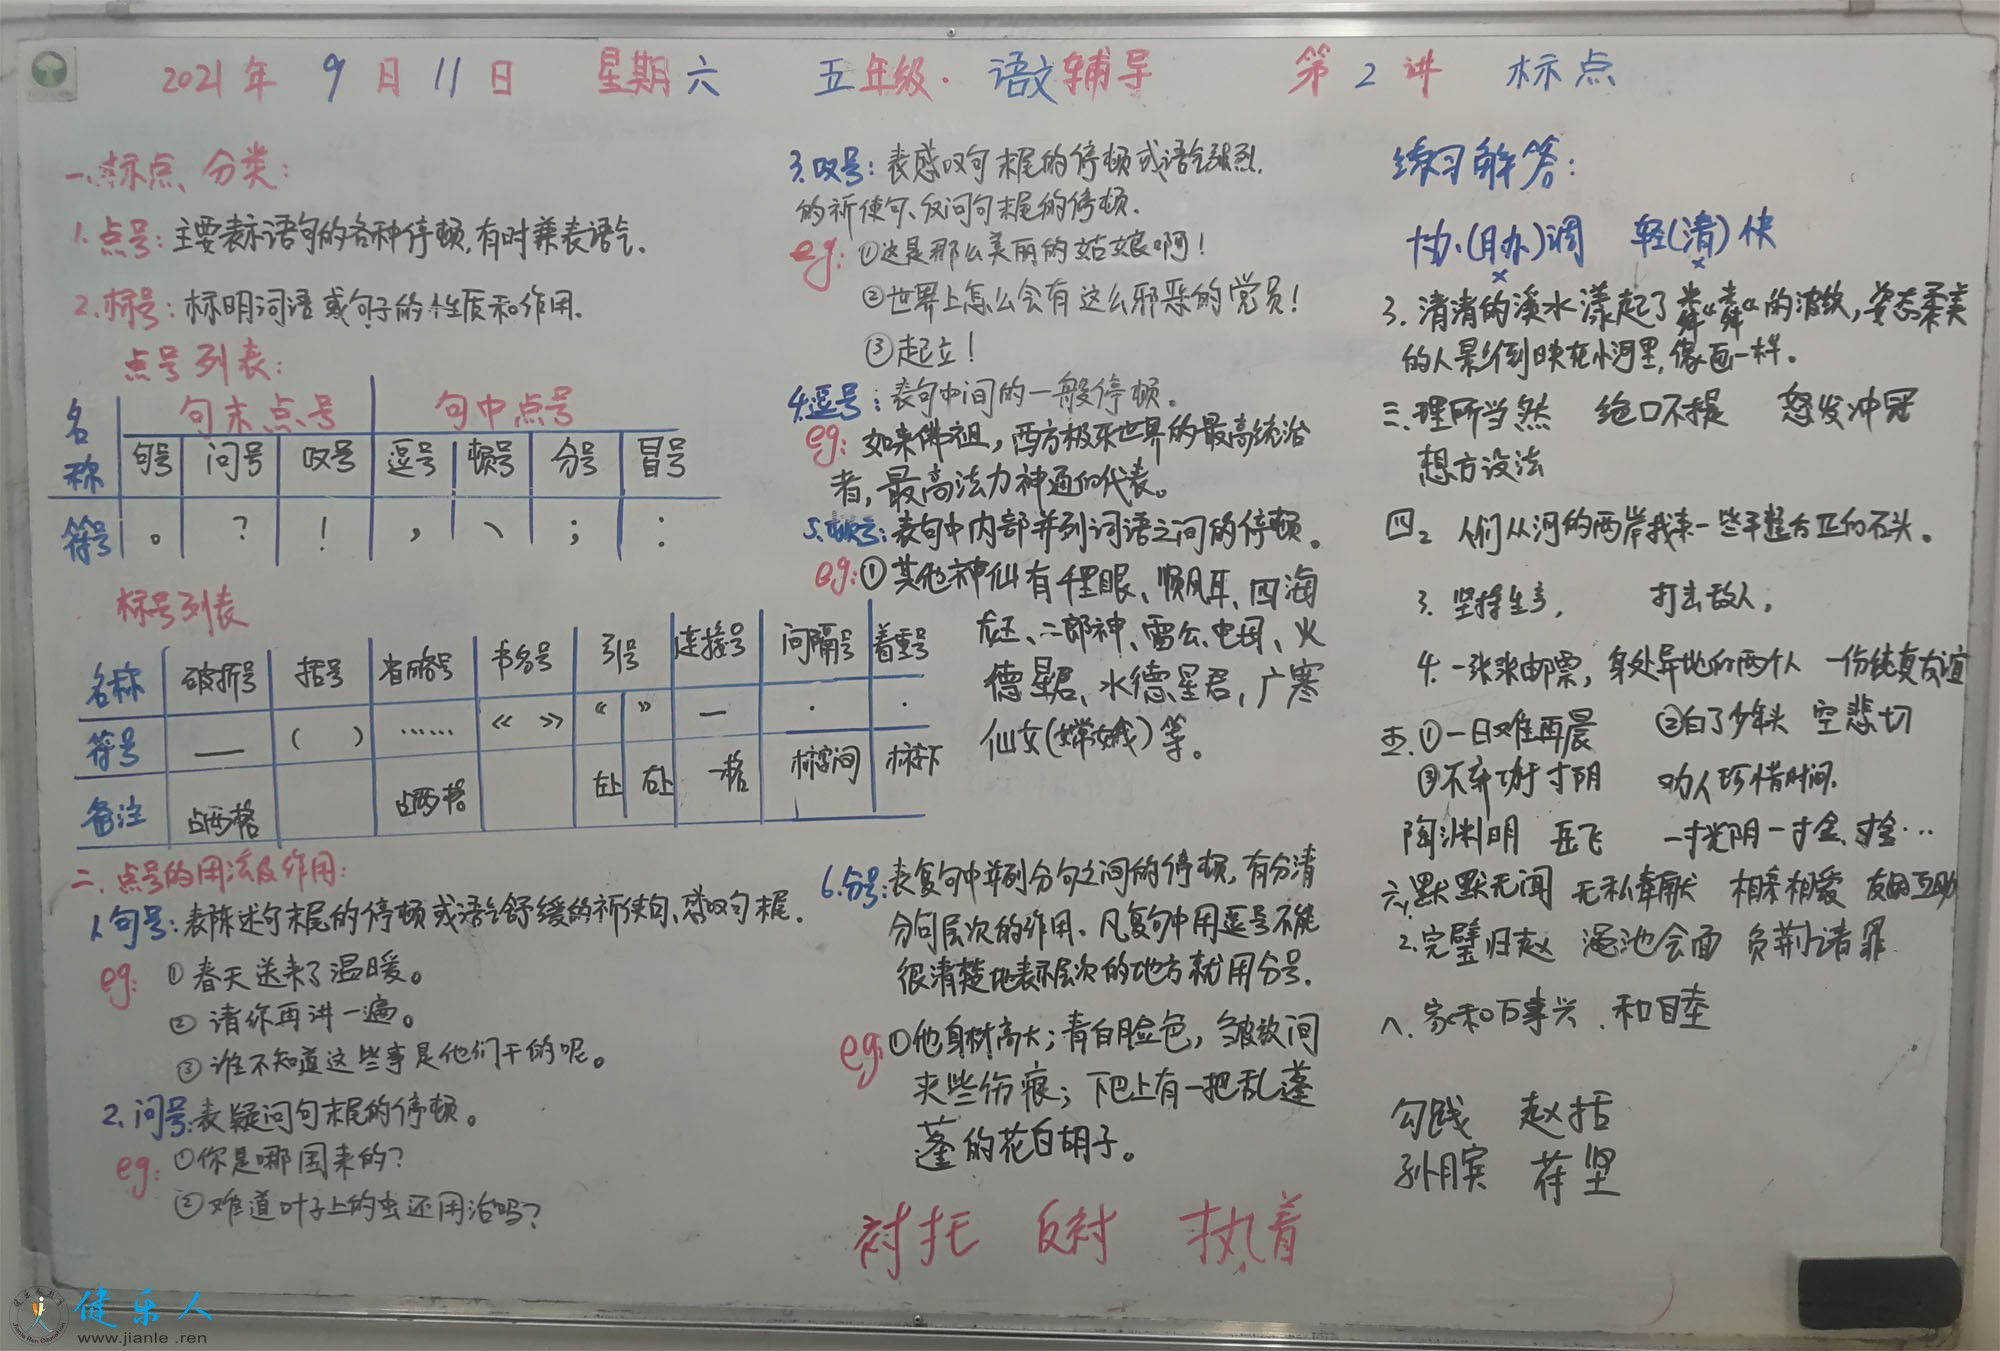 2021年 9月11日 星期六 五年级·语文辅导 第2讲 标点
一、标点、分类：
1.点号：主要表示语句的各种停顿，有时兼表语气.
2.标号：标明词语或句子的性质和作用.
点号列表：
名称 句末点号 句中点号
句号 问号 叹号 逗号 顿号 分号 冒号
符号 。 ？ ！ ， 、 ； ：
标号列表
名称 破折号 括号 省略号 书名号 引号 连接号 间隔号 着重号
符号 —— （ ） …… 《 》 “ ” — · .
备注 占两格 占两格 左上 右上 一格 标字间 标字下
二、点号的用法及作用：
1.句号：表陈述句末尾的停顿或语气舒缓的祈使句、感叹句尾.
eg: ①春天送来了温暖。
②请你再讲一遍。
③谁不知道这些事是他们干的呢。
2.问号：表疑问句末尾的停顿。
eg: ①你是哪国来的？
②难道叶子上的虫还用治吗？
3.叹号：表感叹句末尾的停顿或语气强烈.
的祈使句、反问句末尾的停顿.
eg: ①这是那么美丽的姑娘啊！
②世界上怎么会有这么邪恶的党员！
③起立！
4.逗号：表句中间的一般停顿。
eg: 如来佛祖，西方极乐世界的最高统治
者，最高法力神通的代表。
5.顿号：表句中内部并列词语之间的停顿。
eg: ①其他神仙有千里眼、顺风耳、四海
龙王、二郎神、雷公、电母、火
德星君、水德星君，广寒
仙女(嫦娥)等。
6.分号：表复句中并列分句之间的停顿，有分清
分句层次的作用。凡复句中用逗号不能
很清楚地表示层次的地方就用分号.
eg: ①他身材高大；青白脸色，皱纹间
夹些伤痕；下巴上有一把乱蓬
蓬的花白胡子。
衬托 反衬 执着
练习解答：
协(办)调 轻(清)快
3.清清的溪水漾起了粼粼的波纹，姿态柔美
的人影倒映在小河里，像画一样。
三、理所当然 绝口不提 怒发冲冠
想方设法
四2 人们从河的两岸找来一些平整方正的石头。
3.坚持生产， 打击敌人。
4.一张张邮票，身处异地的两个人 一份纯真友谊
五.①一日难再晨 ②白了少年头 空悲切
③不弃功于寸阴 劝人珍惜时间.
陶渊明 岳飞 一寸光阴一寸金、寸金…
六、默默无闻 无私奉献 相亲相爱 友好互助
2.完璧归赵 渑池会面 负荆请罪
八、家和万事兴、和睦
勾践 赵括
孙膑 苻坚
健乐人
www.jianle.ren